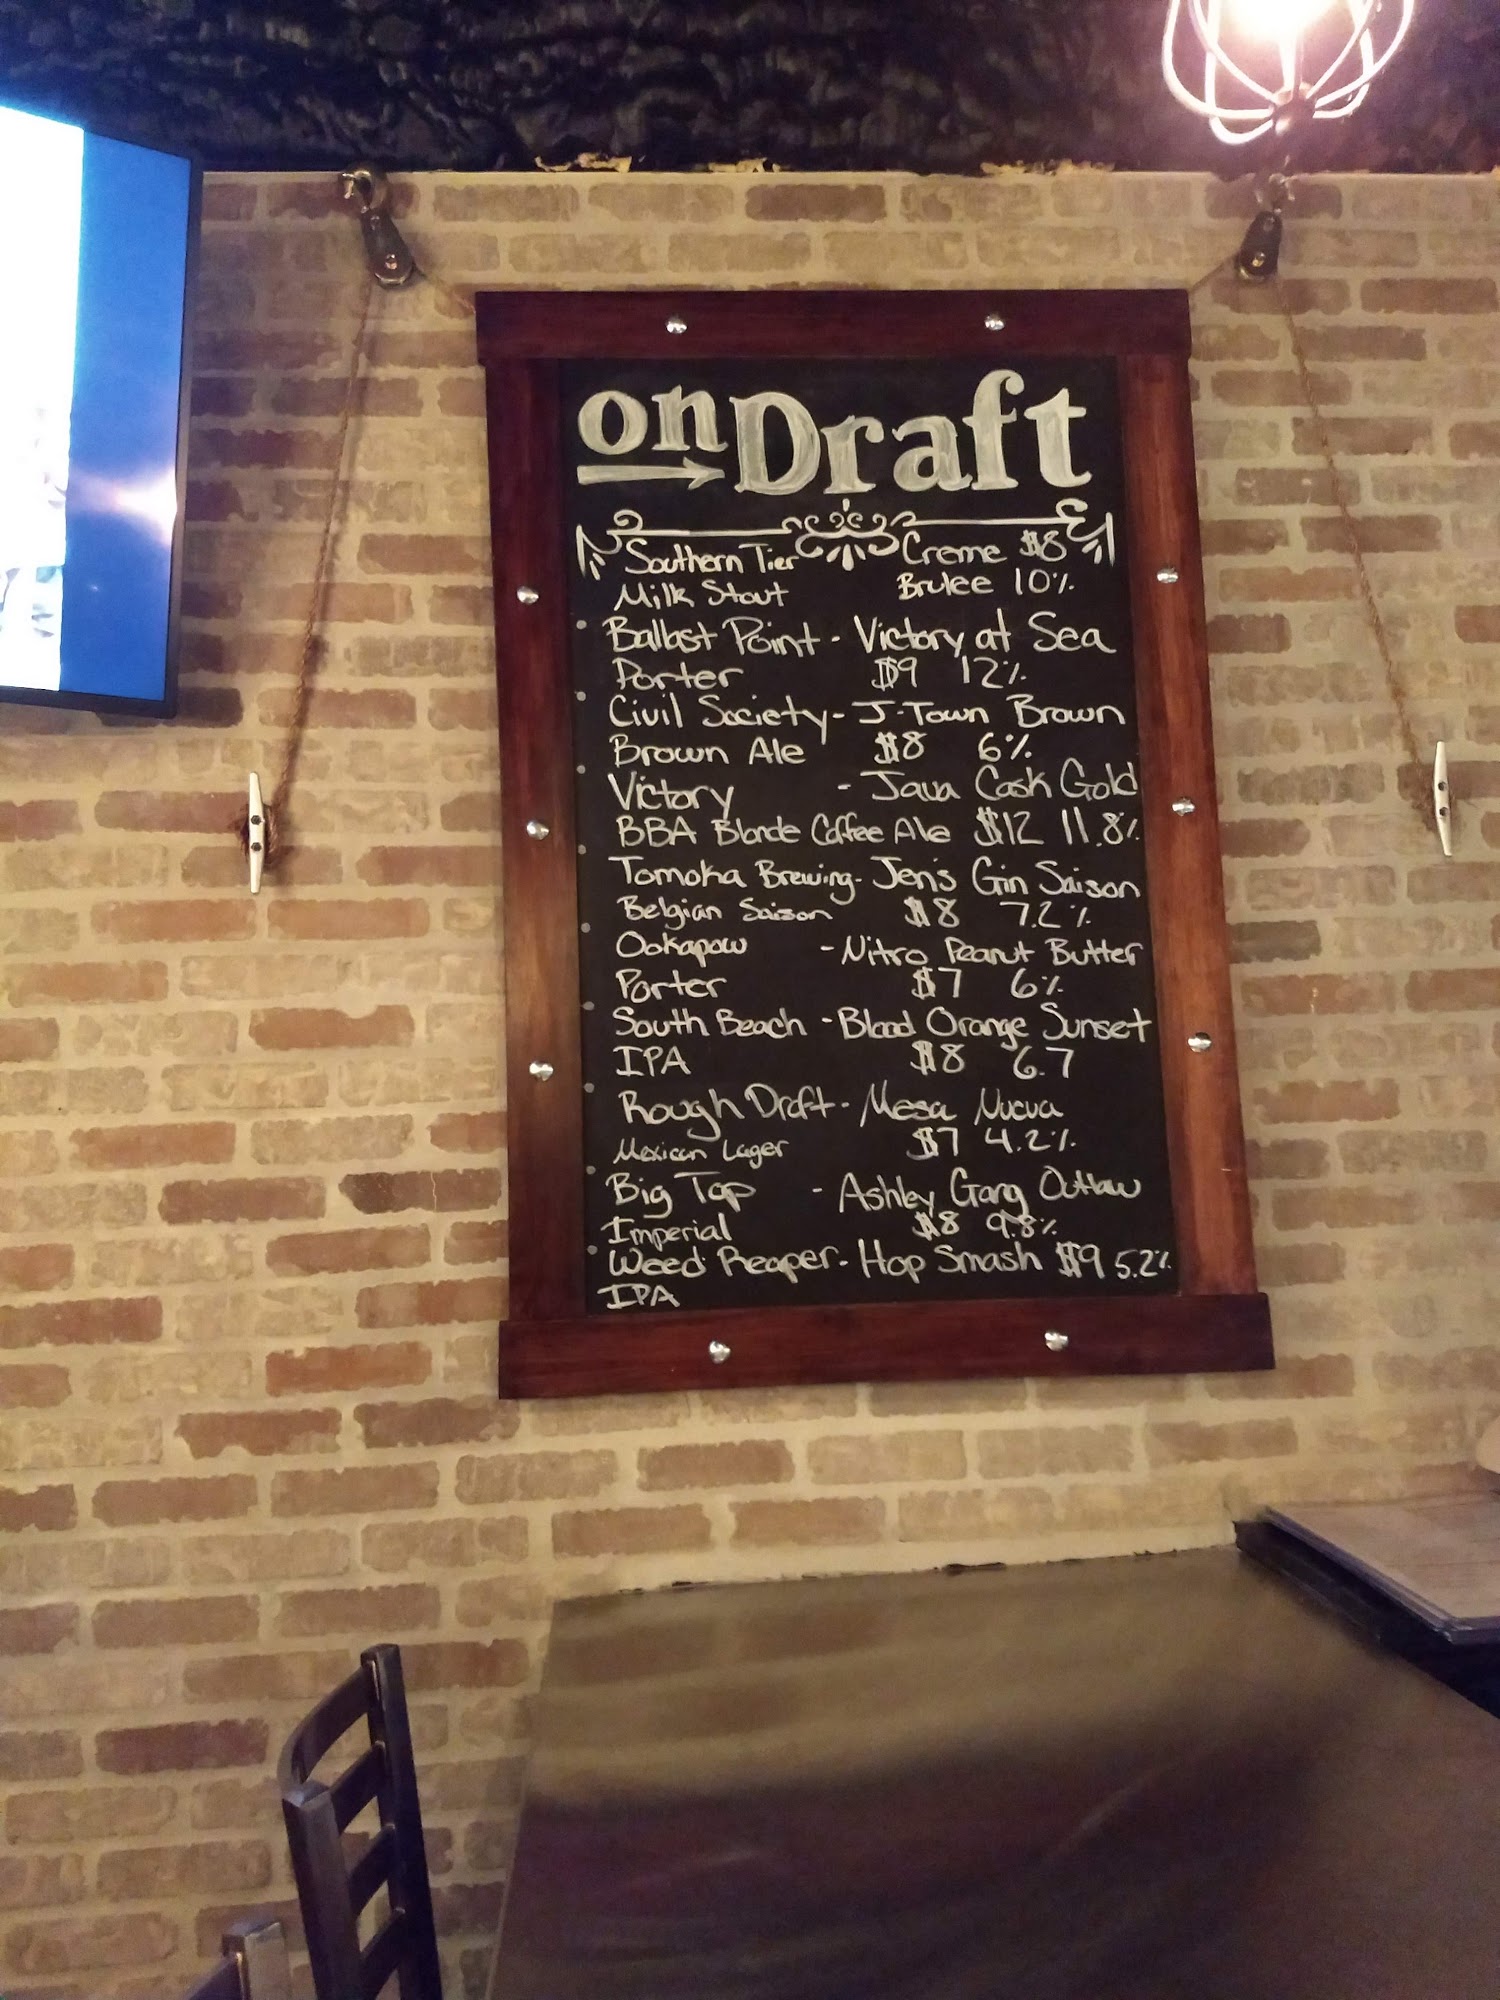 on Draft
Southern Tier Creme $8
Milk Stout Brulee 10%
Ballast Point - Victory at Sea
Porter $9 12%
Civil Society - J-Town Brown
Brown Ale $8 6%
Victory - Java Cask Gold
BBA Blonde Coffee Ale $12 11.8%
Tomoka Brewing - Jen's Gin Saison
Belgian Saison $8 7.2%
Ookapow - Nitro Peanut Butter
Porter $7 6%
South Beach - Blood Orange Sunset
IPA $8 6.7
Rough Draft - Mesa Nueva
Mexican Lager $7 4.2%
Big Top - Ashley Gang Outlaw
Imperial $8 9.8%
Weed Reaper - Hop Smash $9 5.2%
IPA